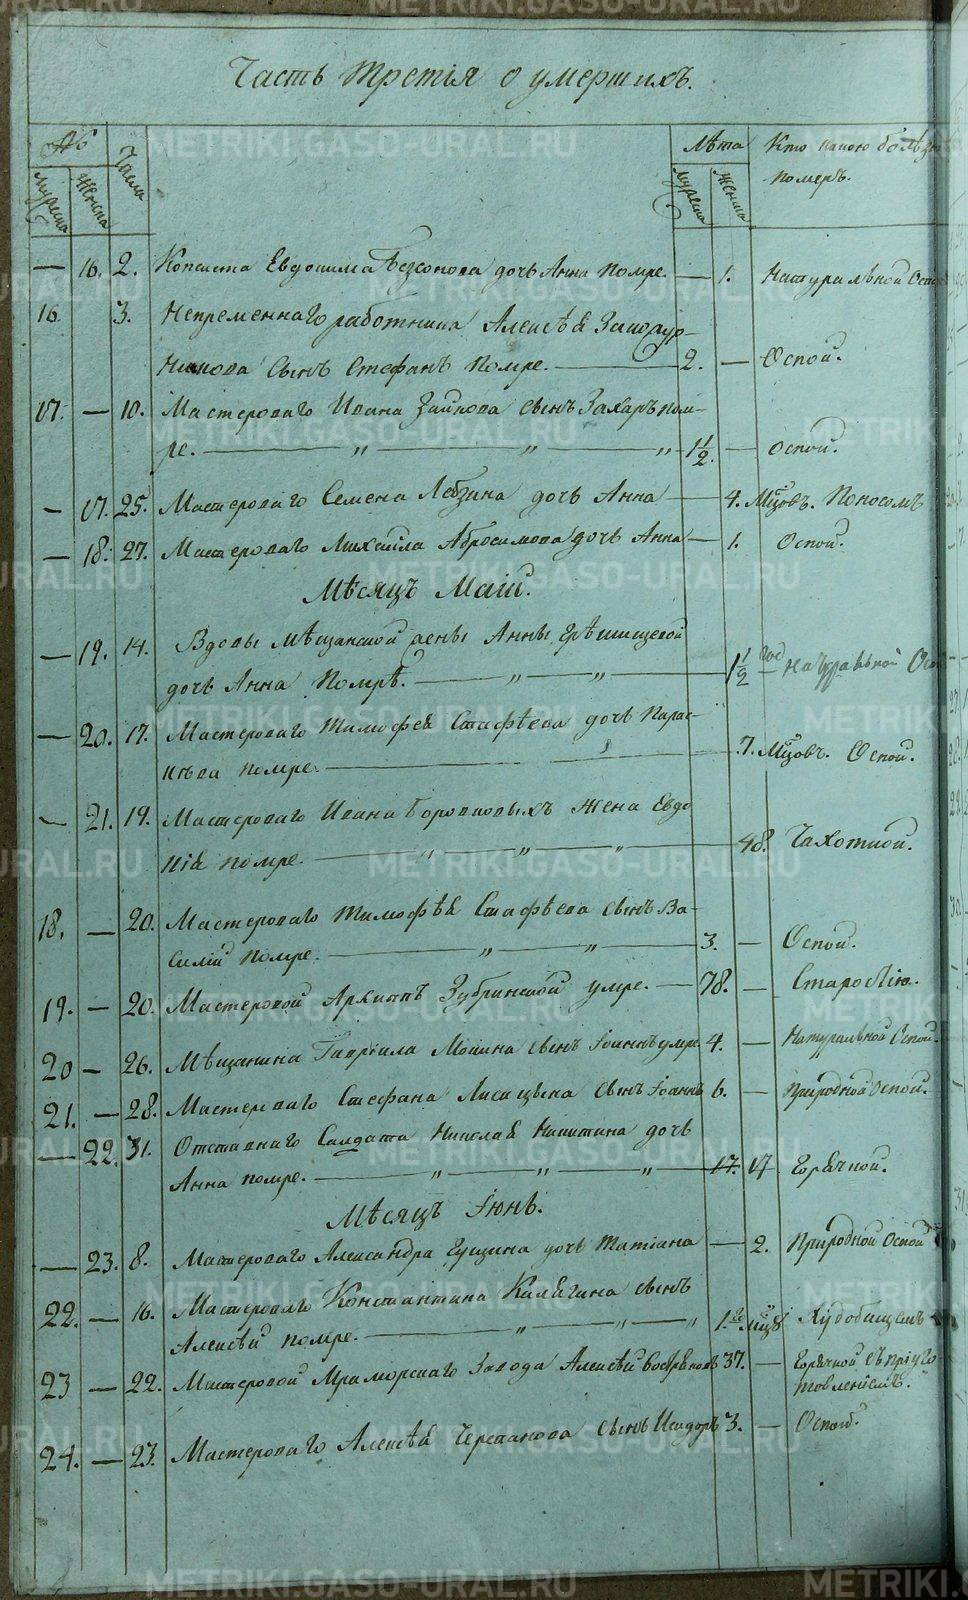 Часть третія о умершихъ.
№ Числа Лѣта Кто какою болѣз
мужеска женска мужеска женска померъ.
— 16. 2. Кописта Евдокима Безсонова дочь Анна помре. — 1. Натуральной Оспой
16. 3. Непременнаго работника Алексѣя
сынъ Стефанъ помре. — 2. — Оспой.
17. — 10. Мастероваго Ивана Зайкова сынъ Захаръ пом-
ре. — „ — „ — „ 1 1/2. — оспой.
— 17. 25. Мастероваго Семена дочь Анна — 4. Мцовъ. Поносомъ
— 18. 27. Мастероваго Михаила Абросимова дочь Анна — 1. Оспой.
Мѣсяцъ Маій.
— 19. 14. Вдовы мѣщанской жены Анны
дочь Анна помрѣ. — „ — „ — 1 1/2 год Натуральной Оспой
— 20. 17. Мастероваго Тимофея Стафѣева дочь Парас-
кѣва помре. — 7. Мцовъ. Оспой.
— 21. 19. Мастероваго Ивана Боровковыхъ жена Евдо
кія помре. — „ — „ — „ — 48. Чахоткой.
18. — 20. Мастероваго Тимофѣя Стафѣева сынъ Ва-
силій помре. — „ — „ — 3. — Оспой.
19. — 20. Мастеровой Архиппъ Зубринской умре. — 78. — Старостію.
20 — 26. Мѣщанина Гавріила Мокина сынъ Іоаннъ умре 4. — Натуральной Оспой.
21. — 28. Мастероваго Стефана Лисицына сынъ Іоаннъ 6. — Природной Оспой.
— 22. 31. Отставнаго Салдата Николая Никитина дочь
Анна помре. — „ — „ — „ — 17. 17 Горячкой.
Мѣсяцъ Іюнь.
— 23. 8. Мастероваго Александра Гущина дочь Татіана — 2. Природной Оспой
22. — 16. Мастероваго Константина Калягина сынъ
Алексѣй помре. — „ — „ — „ 1. мцъ Худобищемъ
23 — 22. Мастеровой Мраморскаго Завода Алексѣй 37. — Горячкой съ пріуго-
товленіемъ.
24. — 23. Мастероваго Алексѣя Черепанова сынъ Исидоръ 3. — Оспой.
METRIKI.GASO-URAL.RU